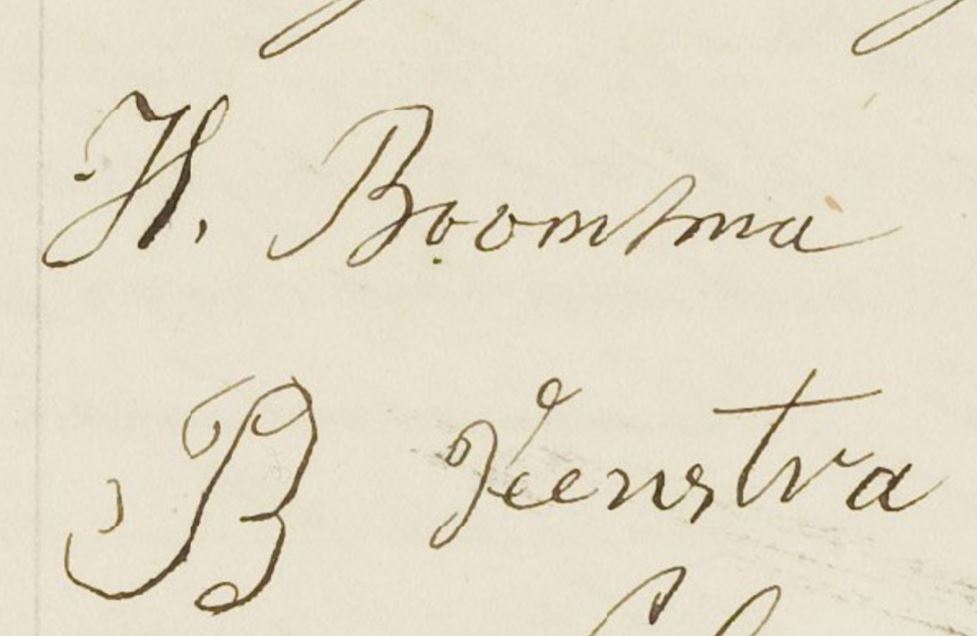 H. Boomsma
B Veenstra